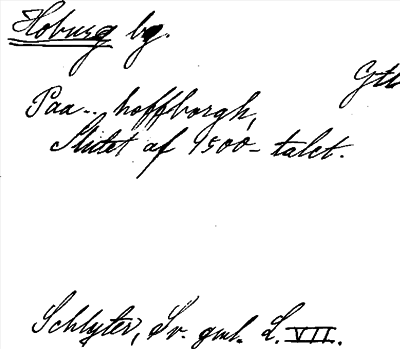 Hoburg bg.
Gtl
Paa.. hoffborgh,
Slutet af 1500-talet.
Schlyter, Sv. gml. L. VII.